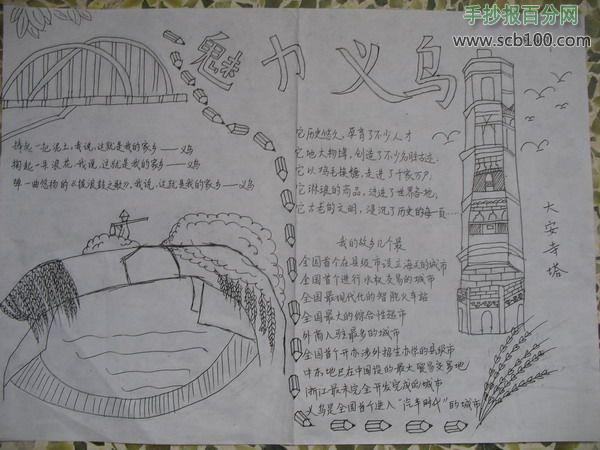 手抄报百分网
www.scb100.com
魅力义乌
捧起一起泥土,我说,这就是我的家乡——义乌
掬起一朵浪花,我说,这就是我的家乡——义乌
弹一曲悠扬的《拨浪鼓之歌》,我说,这就是我的家乡——义乌
它历史悠久,孕育了不少人才
它地大物博,创造了不少名胜古迹,
它以鸡毛换糖,走进了千家万户,
它琳琅的商品,流进了世界各地,
它古老的文明,浸沉了历史的每一页……
大安寺塔
我的故乡几个最
全国首个在县级市设立海关的城市
全国首个进行水权交易的城市
全国最现代化的智能火车站
全国最大的综合性超市
外商入驻最多的城市
全国首个开办涉外招生办学的县级市
中东地区在中国设的最大贸易交易地
浙江最未完全开发完成的城市
义乌是全国首个进入“汽车时代”的城市